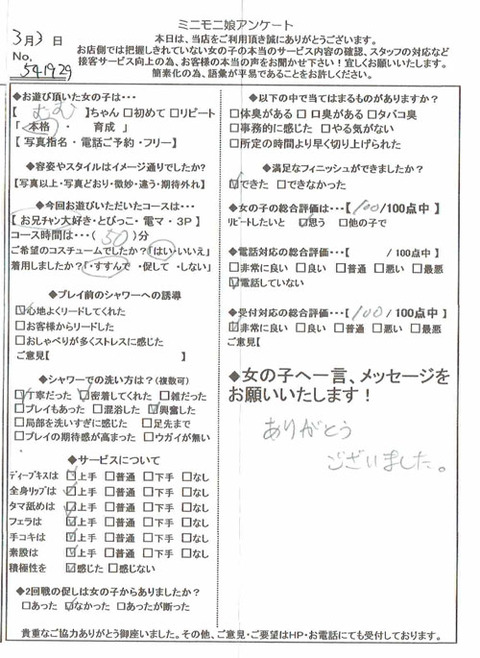 ミニモニ娘アンケート
3月3日
本日は、当店をご利用頂き誠にありがとうございます。
No. 541929
お店側では把握しきれていない女の子の本当のサービス内容の確認、スタッフの対応など
接客サービス向上の為、お客様の本当の声をお聞かせ下さい!宜しくお願いいたします。
簡素化の為、語彙が平易であることをお許しください。
◆お遊び頂いた女の子は・・・
【 むむ 】ちゃん □初めて □リピート
「 本格 ・ 育成 」
【 写真指名 ・ 電話ご予約 ・ フリー】
◆容姿やスタイルはイメージ通りでしたか?
【写真以上・写真どおり・微妙・違う・期待外れ】
◆今回お遊びいただいたコースは・・・
【 お兄チャン大好き・とびっこ・ 電マ ・ 3P 】
コース時間は・・・( 50 )分
ご希望のコスチュームでしたか?「はい・いいえ」
着用しましたか?「・すすんで ・促して ・しない」
◆プレイ前のシャワーへの誘導
☑心地よくリードしてくれた
□お客様からリードした
□おしゃべりが多くストレスに感じた
ご意見【 】
◆シャワーでの洗い方は?(複数可)
☑丁寧だった ☑密着してくれた □雑だった
□プレイもあった □混浴した ☑興奮した
□局部を洗いすぎに感じた □足先まで
□プレイの期待感が高まった □ウガイが無い
◆サービスについて
ディープキスは ☑上手 □普通 □下手 □なし
全身リップは ☑上手 □普通 □下手 □なし
タマ舐めは ☑上手 □普通 □下手 □なし
フェラは ☑上手 □普通 □下手 □なし
手コキは ☑上手 □普通 □下手 □なし
素股は ☑上手 □普通 □下手 □なし
積極性を ☑感じた □感じない
◆2回戦の促しは女の子からありましたか?
□あった ☑なかった □あったが断った
◆以下の中で当てはまるものがありますか?
□体臭がある □口臭がある □タバコ臭
□事務的に感じた □やる気がない
□所定の時間より早く切り上げられた
◆満足なフィニッシュができましたか?
☑できた □できなかった
◆女の子の総合評価は・・・【 100 /100点中 】
リピートしたいと ☑思う □他の子で
◆電話対応の総合評価・・・【 /100点中 】
□非常に良い □良い □普通 □悪い □最悪
☑電話していない
◆受付対応の総合評価・・・【 100 /100点中】
☑非常に良い □良い □普通 □悪い □最悪
ご意見【 】
◆女の子へ一言、メッセージを
お願いいたします!
ありがとう
ございました。
貴重なご協力ありがとう御座いました。その他、ご意見・ご要望はHP・お電話にても受付しております。